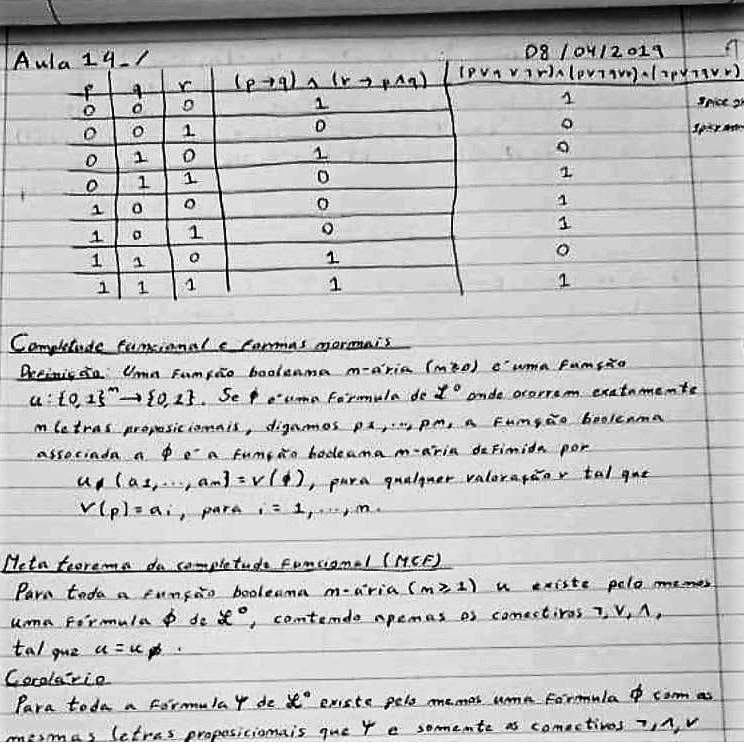 Aula 14_/ 08/04/2019
p q r (p→q) ∧ (r → p∧q) (p∨q∨¬r)∧(p∨¬q∨r)∧(¬p∨¬q∨r)
0 0 0 1 1
0 0 1 0 0
0 1 0 1 0
0 1 1 0 1
1 0 0 0 1
1 0 1 0 1
1 1 0 1 0
1 1 1 1 1
Completude funcional e formas normais
Definição: Uma função booleana n-ária (n≥0) é uma função
u: {0,1}ⁿ → {0,1}. Se ϕ é uma fórmula de ℒ⁰ onde ocorrem exatamente
n letras proposicionais, digamos p1,..., pn, a função booleana
associada a ϕ é a função booleana n-ária definida por
uϕ (a1,...,an) = v(ϕ), para qualquer valoração v tal que
v(p) = ai, para i = 1,...,n.
Meta teorema da completude funcional (MCF)
Para toda a função booleana n-ária (n≥1) u existe pelo menos
uma fórmula ϕ de ℒ⁰, contendo apenas os conectivos ¬,∨,∧,
tal que u = uϕ.
Corolário
Para toda a fórmula Ψ de ℒ⁰ existe pelo menos uma fórmula ϕ com as
mesmas letras proposicionais que Ψ e somente os conectivos ¬,∧,∨